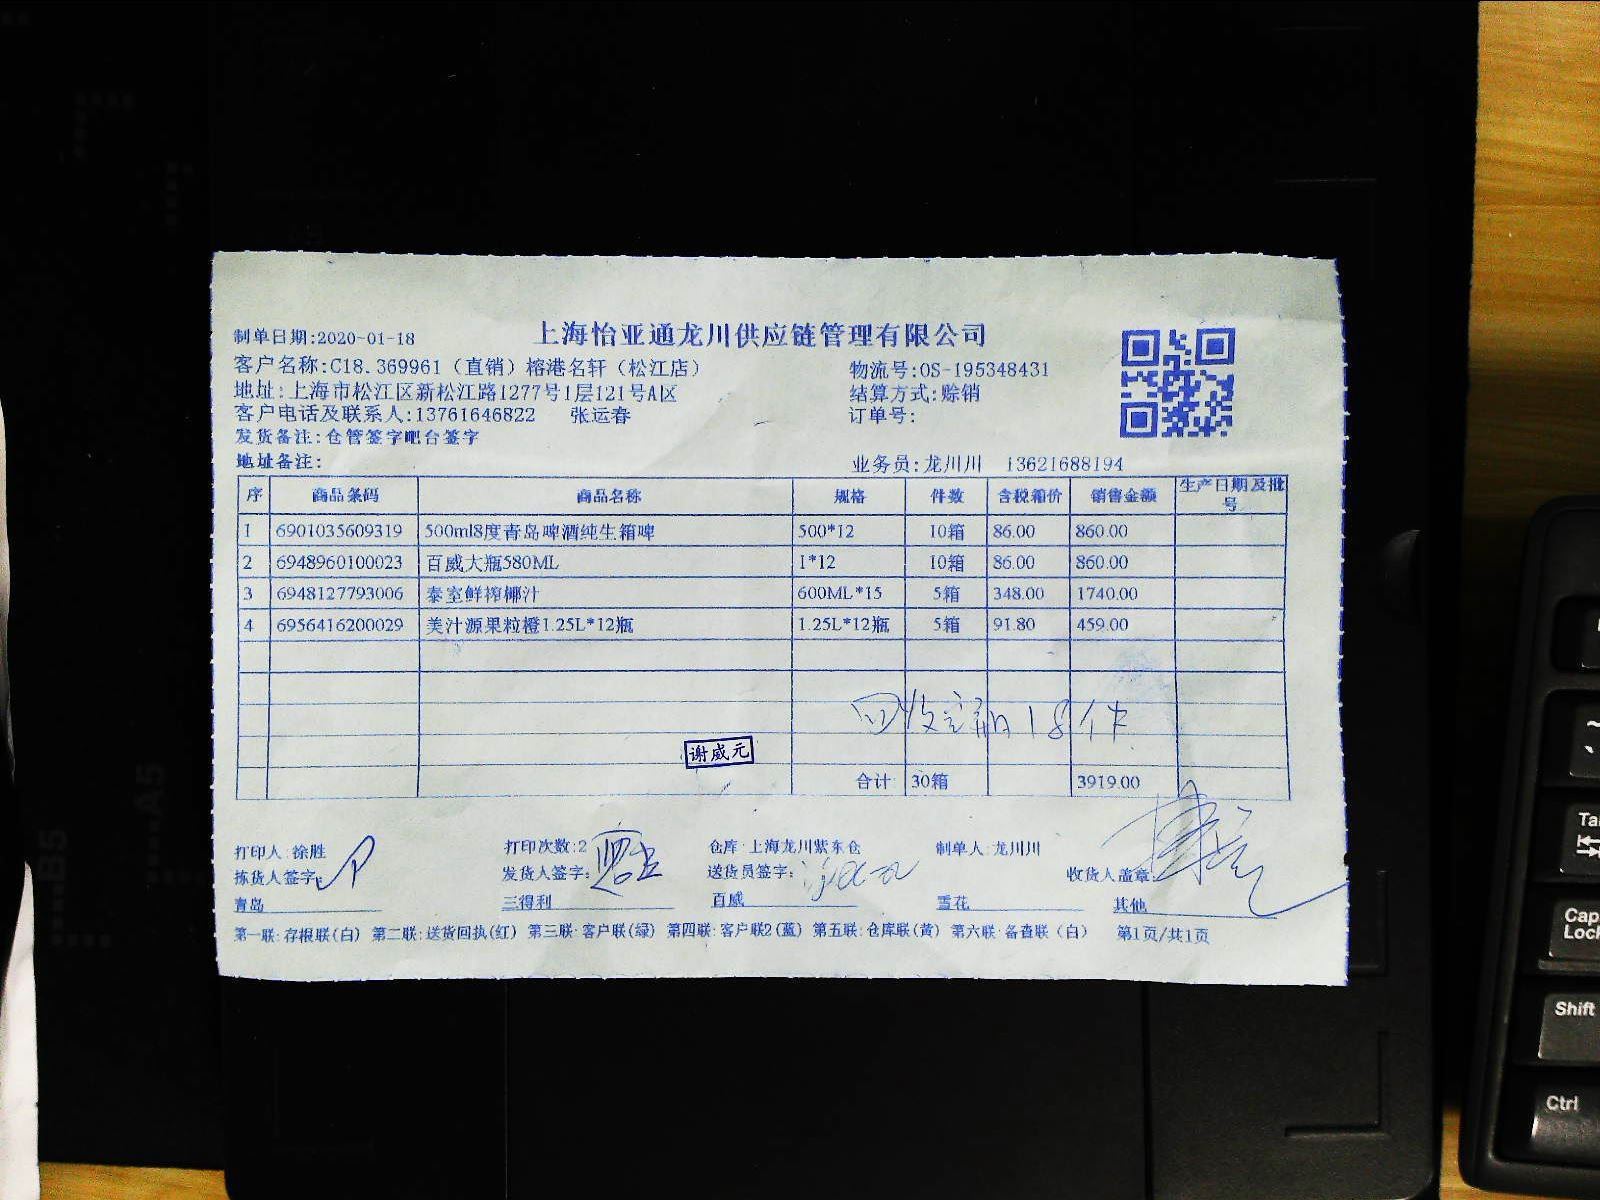 上海怡亚通龙川供应链管理有限公司
制单日期:2020-01-18
客户名称:C18.369961（直销）榕港名轩（松江店） 物流号:OS-195348431
地址:上海市松江区新松江路1277号1层121号A区 结算方式:赊销
客户电话及联系人:13761646822 张运春 订单号:
发货备注:仓管签字吧台签字
地址备注: 业务员:龙川川 13621688194
序 商品条码 商品名称 规格 件数 含税箱价 销售金额 生产日期及批号
1 6901035609319 500ml8度青岛啤酒纯生箱啤 500*12 10箱 86.00 860.00
2 6948960100023 百威大瓶580ML 1*12 10箱 86.00 860.00
3 6948127793006 泰室鲜榨椰汁 600ML*15 5箱 348.00 1740.00
4 6956416200029 美汁源果粒橙1.25L*12瓶 1.25L*12瓶 5箱 91.80 459.00
回收 18件
谢威元
合计 30箱 3919.00
打印人:徐胜 打印次数:2 仓库:上海龙川紫东仓 制单人:龙川川
拣货人签字: 发货人签字: 送货员签字: 收货人盖章:
青岛 三得利 百威 雪花 其他
第一联:存根联(白) 第二联:送货回执(红) 第三联:客户联(绿) 第四联:客户联2(蓝) 第五联:仓库联(黄) 第六联:备查联(白) 第1页/共1页
B5
A5
Tab
Caps Lock
Shift
Ctrl